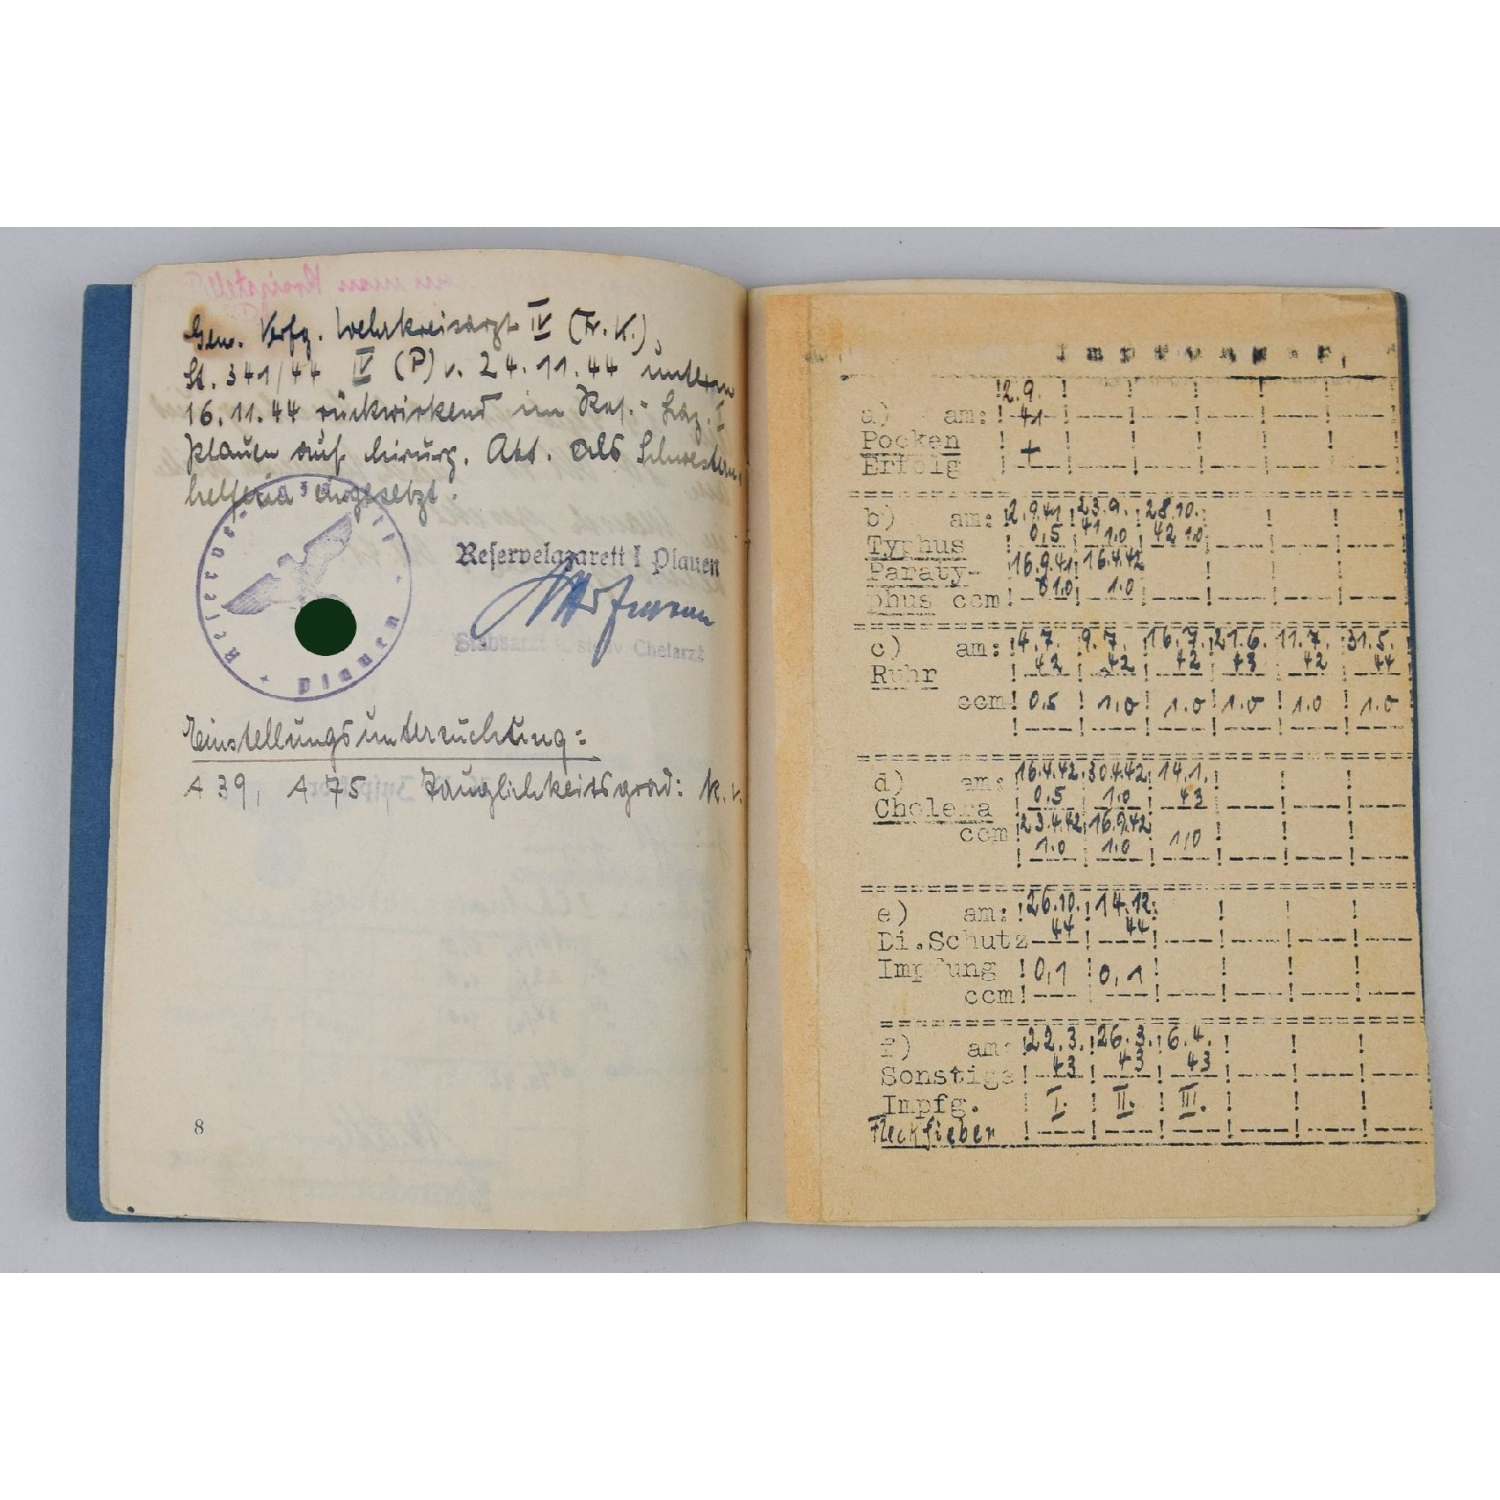 Gem. Verfg. Wehrkreisarzt IV (Tr. K.),
St. 341/44 IV (P) v. 24.11.44 unterm
16.11.44 rückwirkend im Res.-Laz. I
Plauen auf chirurg. Abt. als Schwestern-
helferin eingesetzt.
Reservelazarett I Plauen
Stabsarzt u. stellv. Chefarzt
Reserve-
Plauen
Einstellungsuntersuchung:
A 39, A 75, Tauglichkeitsgrad: k.v.
8
Impfungen,
a) am: 2.9. 41
Pocken
Erfolg +
b) am: 2.9.41 23.9. 41 28.10. 42
Typhus 0,5 1.0 1.0
Paraty- 16.9.41 16.4.42
phus ccm 1.0 1.0
c) am: 4.7. 9.7. 16.7. 21.6. 11.7. 31.5.
Ruhr 42 42 42 43 42 44
ccm 0,5 1,0 1.0 1.0 1.0 1.0
d) am: 16.4.42 30.4.42 14.1. 43
Cholera 0,5 1.0
ccm 23.4.42 16.9.42
1.0 1.0 1,0
e) am: 26.10. 14.12.
Di.Schutz 44 44
Impfung 0,1 0,1
ccm
f) am: 22.3. 26.3. 6.4.
Sonstige 43 43 43
Impfg. I. II. III.
Fleckfieber